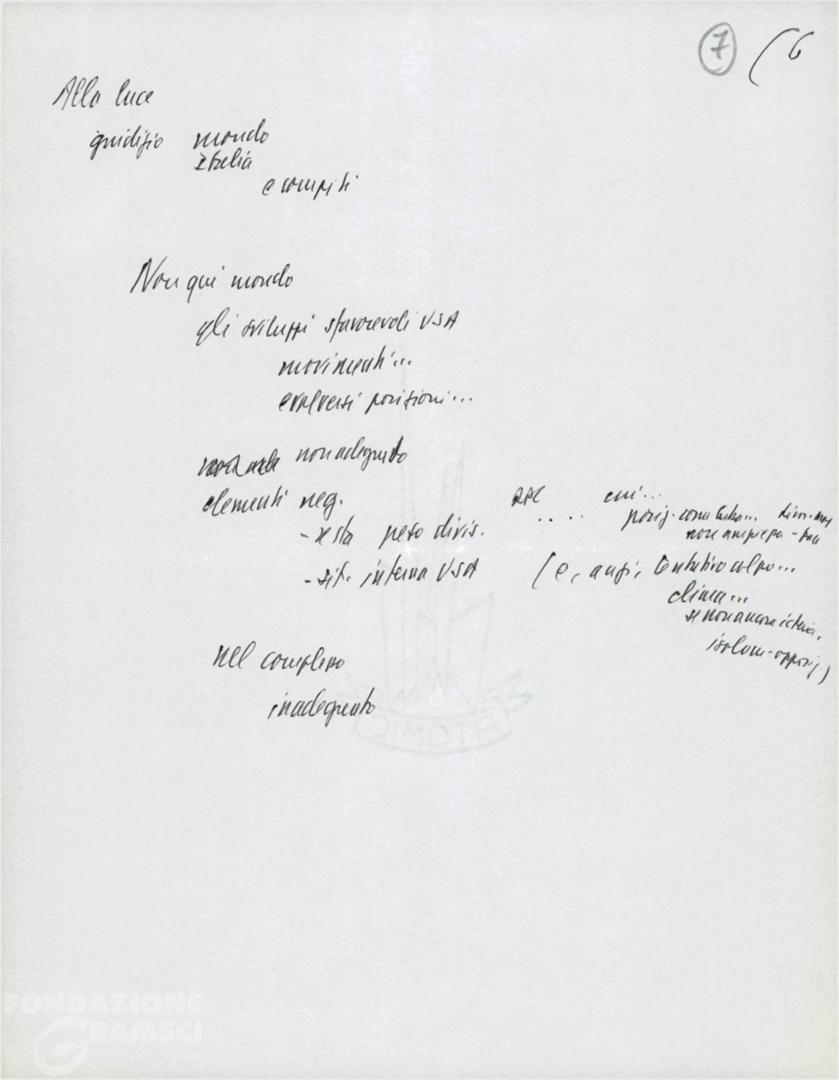 7 (6
Alla luce
giudizio mondo
Italia
e compiti
Non qui mondo
gli sviluppi sfavorevoli USA
movimenti...
evolversi posizioni...
non adeguato
elementi neg.
- resta peso divis.
- sit. interna USA
RPC cui...
.... posiz. come Cuba...
non
(e, anzi, tentativo colpo...
clima...
se non ancora
isolam. opposiz.)
nel complesso
inadeguato
ATOMIC
FONDAZIONE
GRAMSCI